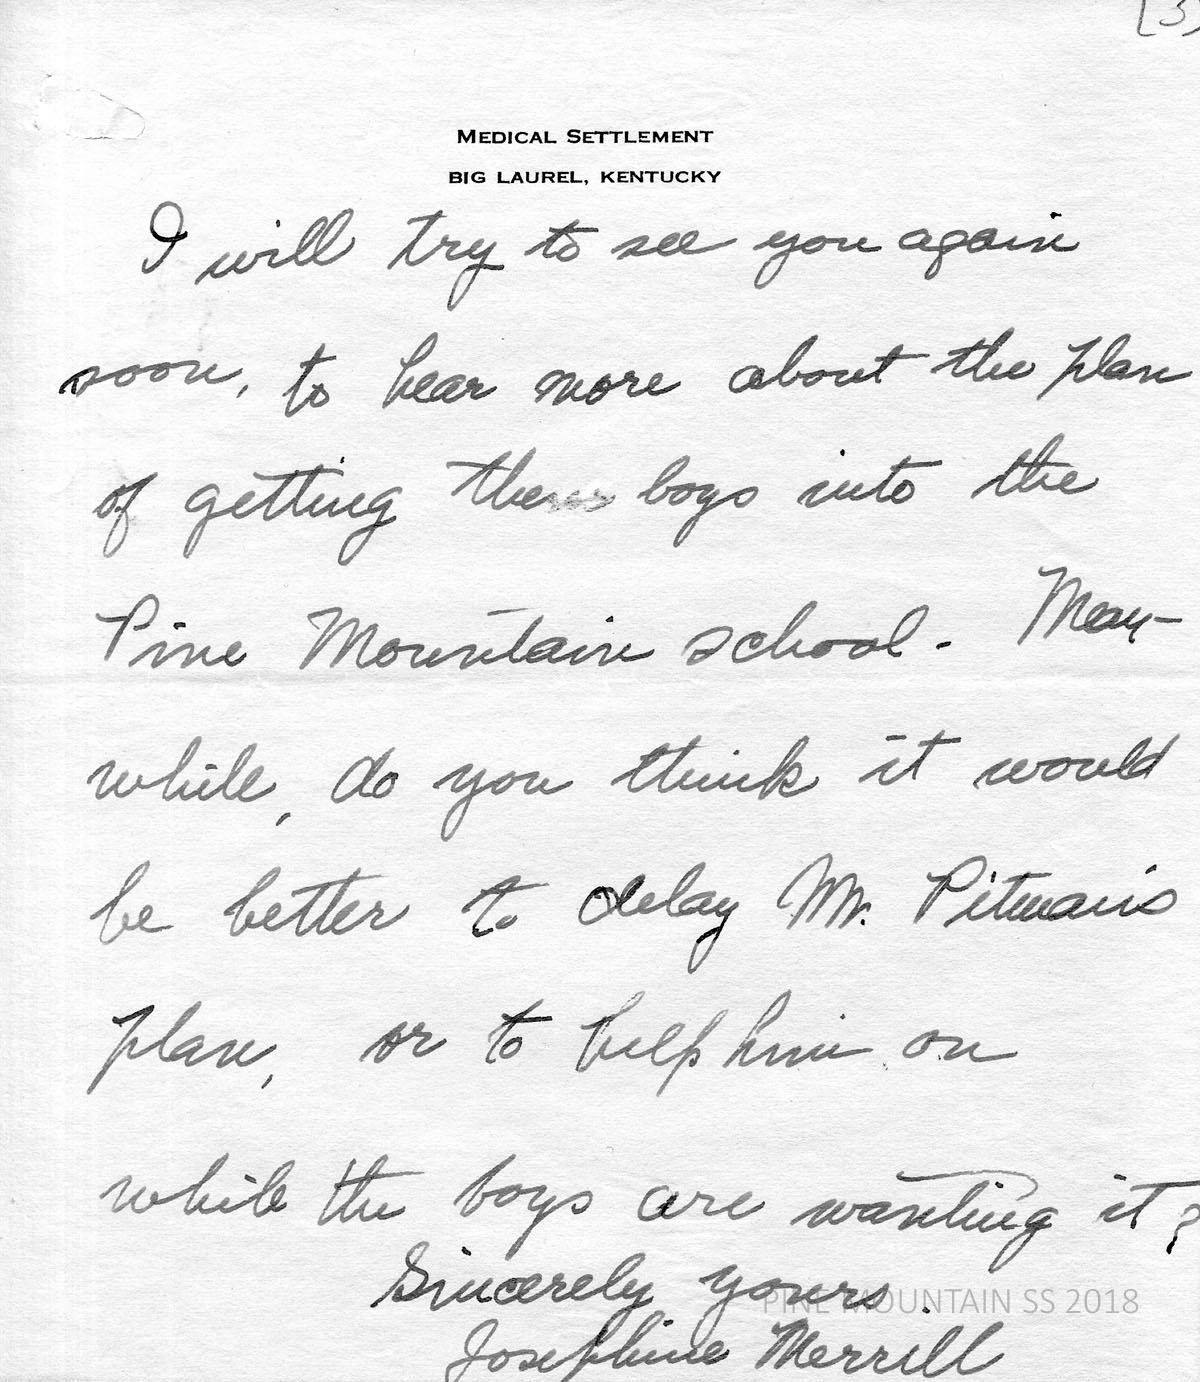 [3]
MEDICAL SETTLEMENT
BIG LAUREL, KENTUCKY
I will try to see you again
soon, to hear more about the plan
of getting these boys into the
Pine Mountain school. Mean-
while, do you think it would
be better to delay Mr. Pitman's
plan, or to help him on
while the boys are wanting it?
Sincerely yours.
PINE MOUNTAIN SS 2018
Josephine Merrill